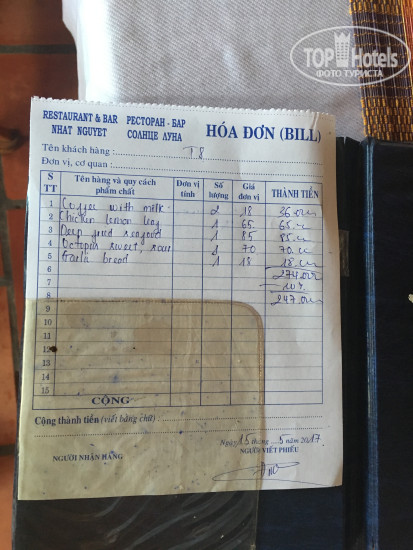 TOP Hotels
ФОТО ТУРИСТА
RESTAURANT & BAR РЕСТОРАН - БАР
NHAT NGUYET СОЛНЦЕ ЛУНА
HÓA ĐƠN (BILL)
Tên khách hàng : T8
Đơn vị, cơ quan :
STT Tên hàng và quy cách phẩm chất Đơn vị tính Số lượng Giá đơn vị THÀNH TIỀN
1 Coffee with milk 2 18 36
2 Chicken lemon 1 65 65
3 Deep fried seafood 1 85 85
4 Octopus sweet, sour 1 70 70
5 Garlic bread 1 18 18
6 274
7 10%
8 247
9
10
11
12
13
14
15
CỘNG
Cộng thành tiền (viết bằng chữ) :
Ngày 15 tháng 5 năm 2017
NGƯỜI NHẬN HÀNG NGƯỜI VIẾT PHIẾU